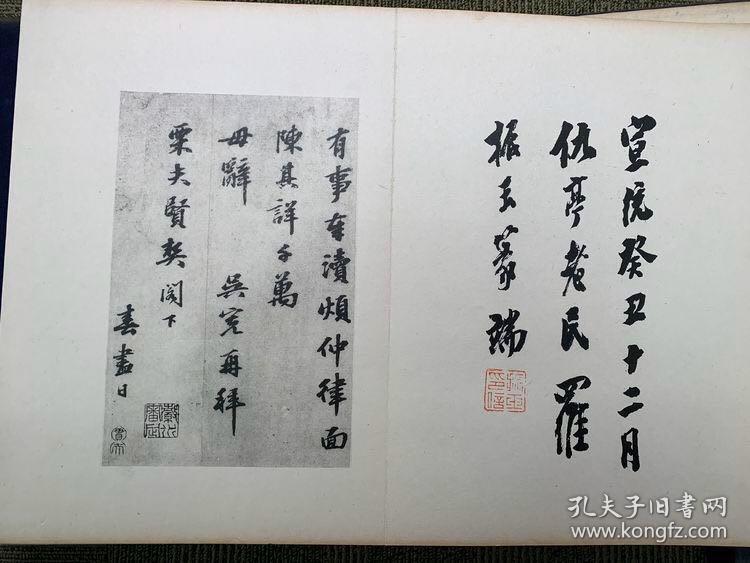 宣統癸丑十二月
仇亭老民羅
振玉篆端
振玉印信
有事奉瀆煩仲律面
陳其詳千萬
毋辭 吳寬再拜
栗夫賢契閣下
春盡日
孔夫子旧书网
www.kongfz.com